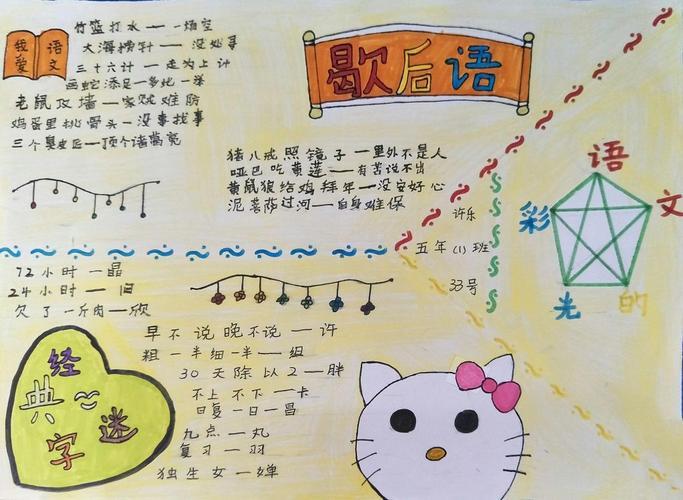 我爱
语文
竹篮打水——一场空
大海捞针——没处寻
三十六计—走为上计
画蛇添足—多此一举
老鼠攻墙—家贼难防
鸡蛋里挑骨头—没事找事
三个臭皮匠—顶个诸葛亮
歇后语
猪八戒照镜子—里外不是人
哑巴吃黄莲——有苦说不出
黄鼠狼给鸡拜年—没安好心
泥菩萨过河——自身难保
许乐
五年(1)班
33号
语
文
的
光
彩
72小时—晶
24小时——旧
欠了一斤肉—欣
经典字谜
早不说晚不说——许
粗一半细一半——组
30天除以2—胖
不上不下—卡
日复一日—昌
九点—丸
复习—羽
独生女—婵